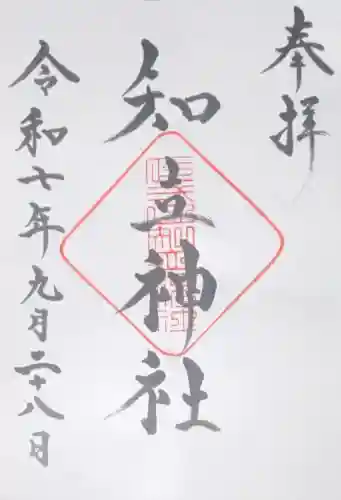 奉拝
知立神社
令和七年九月二十八日